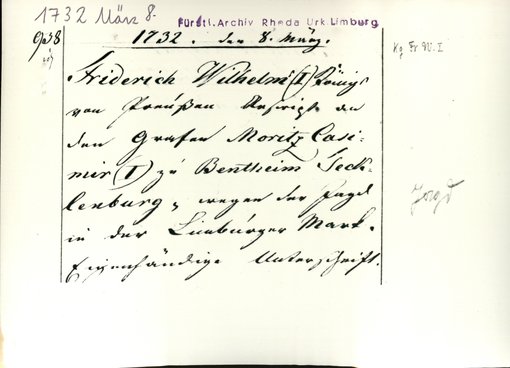 1732 März 8.
Fürstl. Archiv Rheda Urk Limburg
938
1732. den 8. März.
Kg Fr W. I
Friderich Wilhelm (I) Königs
von Preußen Rescript an
den Grafen Moritz Casi-
mir (I) zu Bentheim Teck-
lenburg, wegen der Jagd
in der Limburger Mark.
Eigenhändige Unterschrift.
Jagd